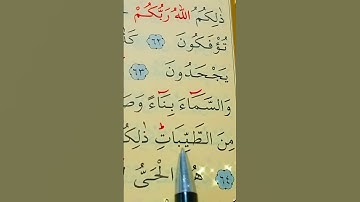 ذٰلِكُمُ اللّٰهُ رَبُّكُمْ
تُؤْفَكُونَ ﴿٦٢﴾
يَجْحَدُونَ ﴿٦٣﴾
وَالسَّمَٓاءَ بِنَٓاءً
مِنَ الطَّيِّبَاتِۜ
﴿٦٤﴾ هُوَ الْحَىُّ